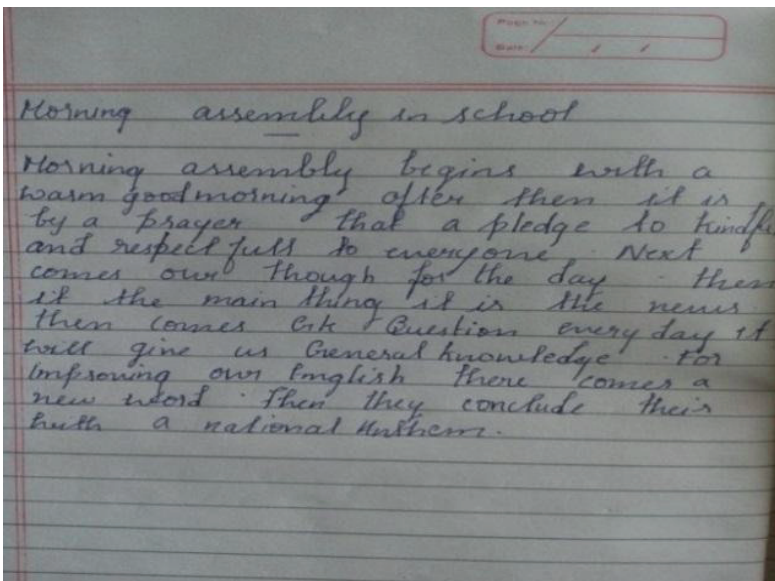 Page No.
Date
Morning assembly in school
Morning assembly begins with a
warm good morning after then it is
by a prayer that a pledge to kindfu
and respect full to everyone Next
comes our though for the day then
it the main thing it is the news.
then comes Gk Question every day it
will give us General knowledge. For
improving our English there comes a
new word. Then they conclude their
huth a national Anthem.